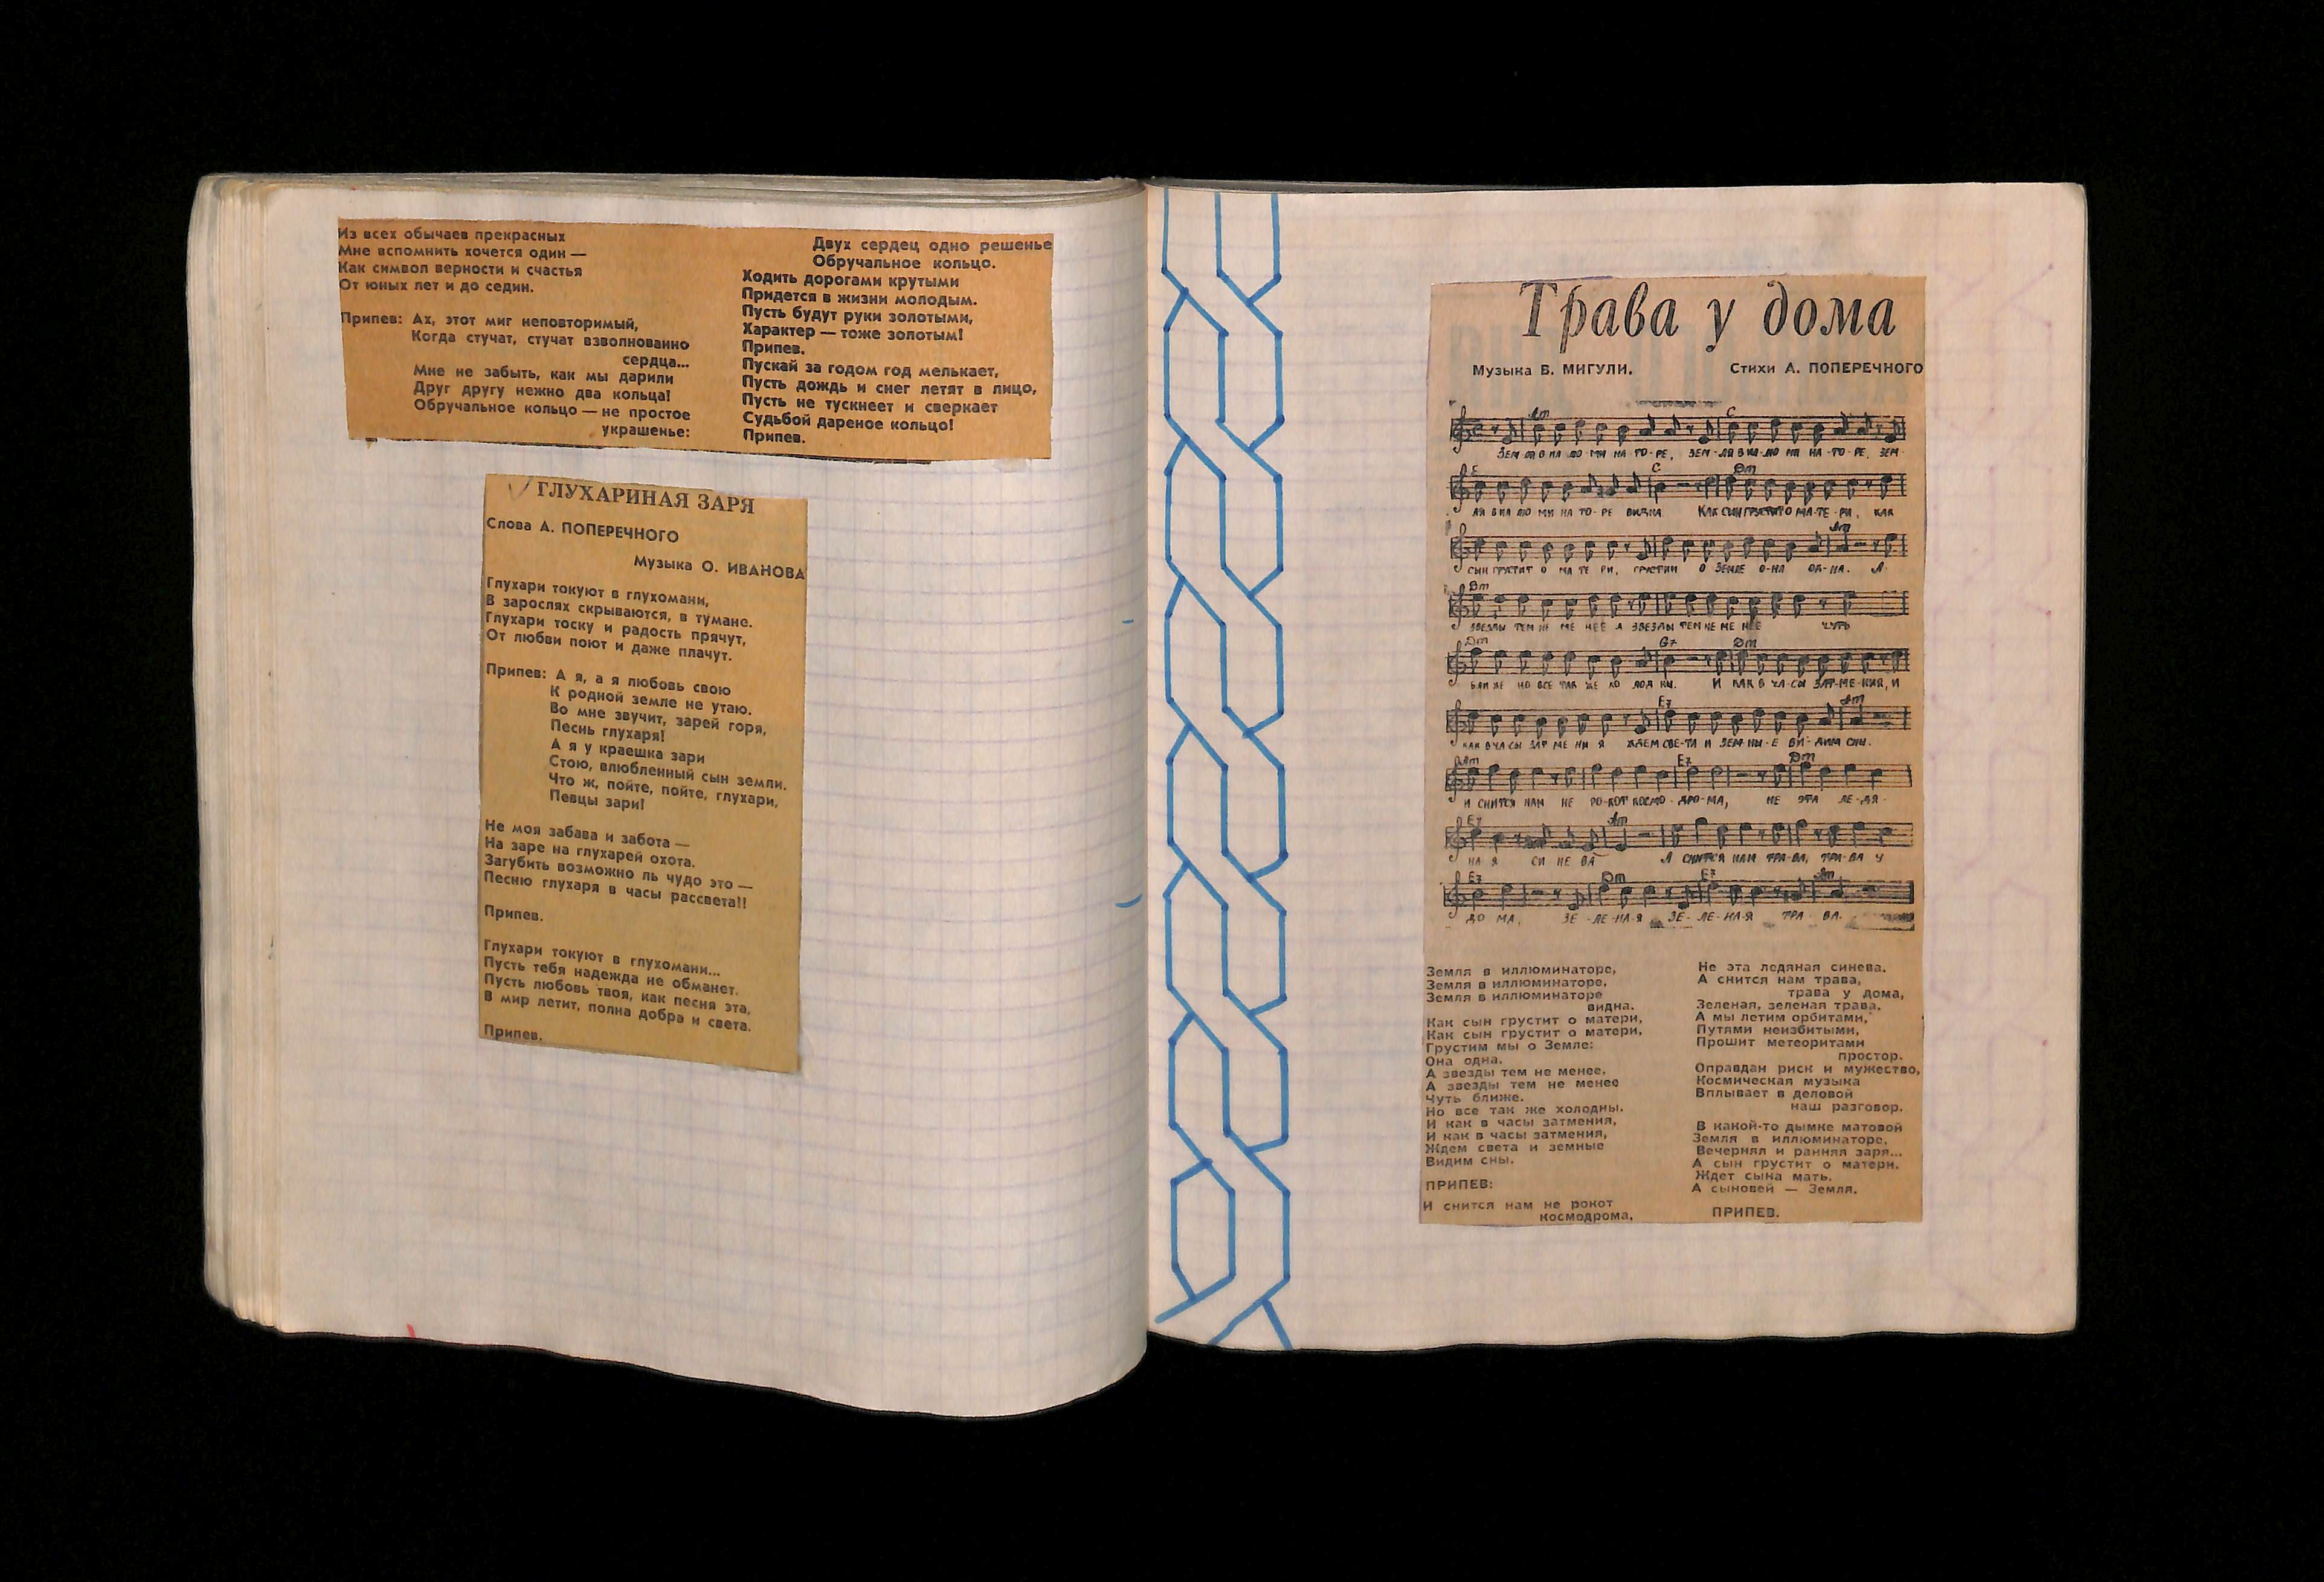 Из всех обычаев прекрасных
Мне вспомнить хочется один —
Как символ верности и счастья
От юных лет и до седин.
Припев: Ах, этот миг неповторимый,
Когда стучат, стучат взволнованно
сердца...
Мне не забыть, как мы дарили
Друг другу нежно два кольца!
Обручальное кольцо — не простое
украшенье:
Двух сердец одно решенье
Обручальное кольцо.
Ходить дорогами крутыми
Придется в жизни молодым.
Пусть будут руки золотыми,
Характер — тоже золотым!
Припев.
Пускай за годом год мелькает,
Пусть дождь и снег летят в лицо,
Пусть не тускнеет и сверкает
Судьбой дареное кольцо!
Припев.
ГЛУХАРИНАЯ ЗАРЯ
Слова А. ПОПЕРЕЧНОГО
Музыка О. ИВАНОВА
Глухари токуют в глухомани,
В зарослях скрываются, в тумане.
Глухари тоску и радость прячут,
От любви поют и даже плачут.
Припев: А я, а я любовь свою
К родной земле не утаю.
Во мне звучит, зарей горя,
Песнь глухаря!
А я у краешка зари
Стою, влюбленный сын земли.
Что ж, пойте, пойте, глухари,
Певцы зари!
Не моя забава и забота —
На заре на глухарей охота.
Загубить возможно ль чудо это —
Песню глухаря в часы рассвета!!
Припев.
Глухари токуют в глухомани...
Пусть тебя надежда не обманет.
Пусть любовь твоя, как песня эта,
В мир летит, полна добра и света.
Припев.
Трава у дома
Музыка В. МИГУЛИ.
Стихи А. ПОПЕРЕЧНОГО
Am C
ЗЕМ-ЛЯ В ИЛ-ЛЮ-МИ-НА-ТО-РЕ, ЗЕМ-ЛЯ В ИЛ-ЛЮ-МИ-НА-ТО-РЕ, ЗЕМ-
C Dm
ЛЯ В ИЛ ЛЮ МИ НА ТО-РЕ ВИДНА. КАК СЫН ГРУСТИТ О МА-ТЕ-РИ, КАК
Am
СЫН ГРУСТИТ О МА ТЕ РИ, ГРУСТИМ О ЗЕМЛЕ О-НА ОД-НА. А
Dm
ЗВЕЗДЫ ТЕМ НЕ МЕ НЕЕ А ЗВЕЗДЫ ТЕМ НЕ МЕ НЕЕ ЧУТЬ
Dm G7 Dm
БЛИ ЖЕ НО ВСЕ ТАК ЖЕ ХО ЛОД НЫ. И КАК В ЧА-СЫ ЗАТ-МЕ-НИЯ, И
E7 Am
КАК В ЧА СЫ ЗАТ МЕ НИ Я ЖДЕМ СВЕ-ТА И ЗЕМ-НЫ-Е ВИ-ДИМ СНЫ.
Am E7 Dm
И СНИТСЯ НАМ НЕ РО-КОТ КОСМО-ДРО-МА, НЕ ЭТА ЛЕ-ДЯ-
E7 Am
НА Я СИ НЕ ВА А СНИТСЯ НАМ ТРА-ВА, ТРА-ВА У
E7 Dm E7 Am
ДО МА, ЗЕ-ЛЕ-НА-Я ЗЕ-ЛЕ-НА-Я ТРА-ВА.
Земля в иллюминаторе,
Земля в иллюминаторе,
Земля в иллюминаторе
видна.
Как сын грустит о матери,
Как сын грустит о матери,
Грустим мы о Земле:
Она одна.
А звезды тем не менее,
А звезды тем не менее
Чуть ближе.
Но все так же холодны.
И как в часы затмения,
И как в часы затмения,
Ждем света и земные
Видим сны.
ПРИПЕВ:
И снится нам не рокот
космодрома,
Не эта ледяная синева.
А снится нам трава,
трава у дома,
Зеленая, зеленая трава.
А мы летим орбитами,
Путями неизбитыми,
Прошит метеоритами
простор.
Оправдан риск и мужество,
Космическая музыка
Вплывает в деловой
наш разговор.
В какой-то дымке матовой
Земля в иллюминаторе,
Вечерняя и ранняя заря...
А сын грустит о матери.
Ждет сына мать.
А сыновей — Земля.
ПРИПЕВ.